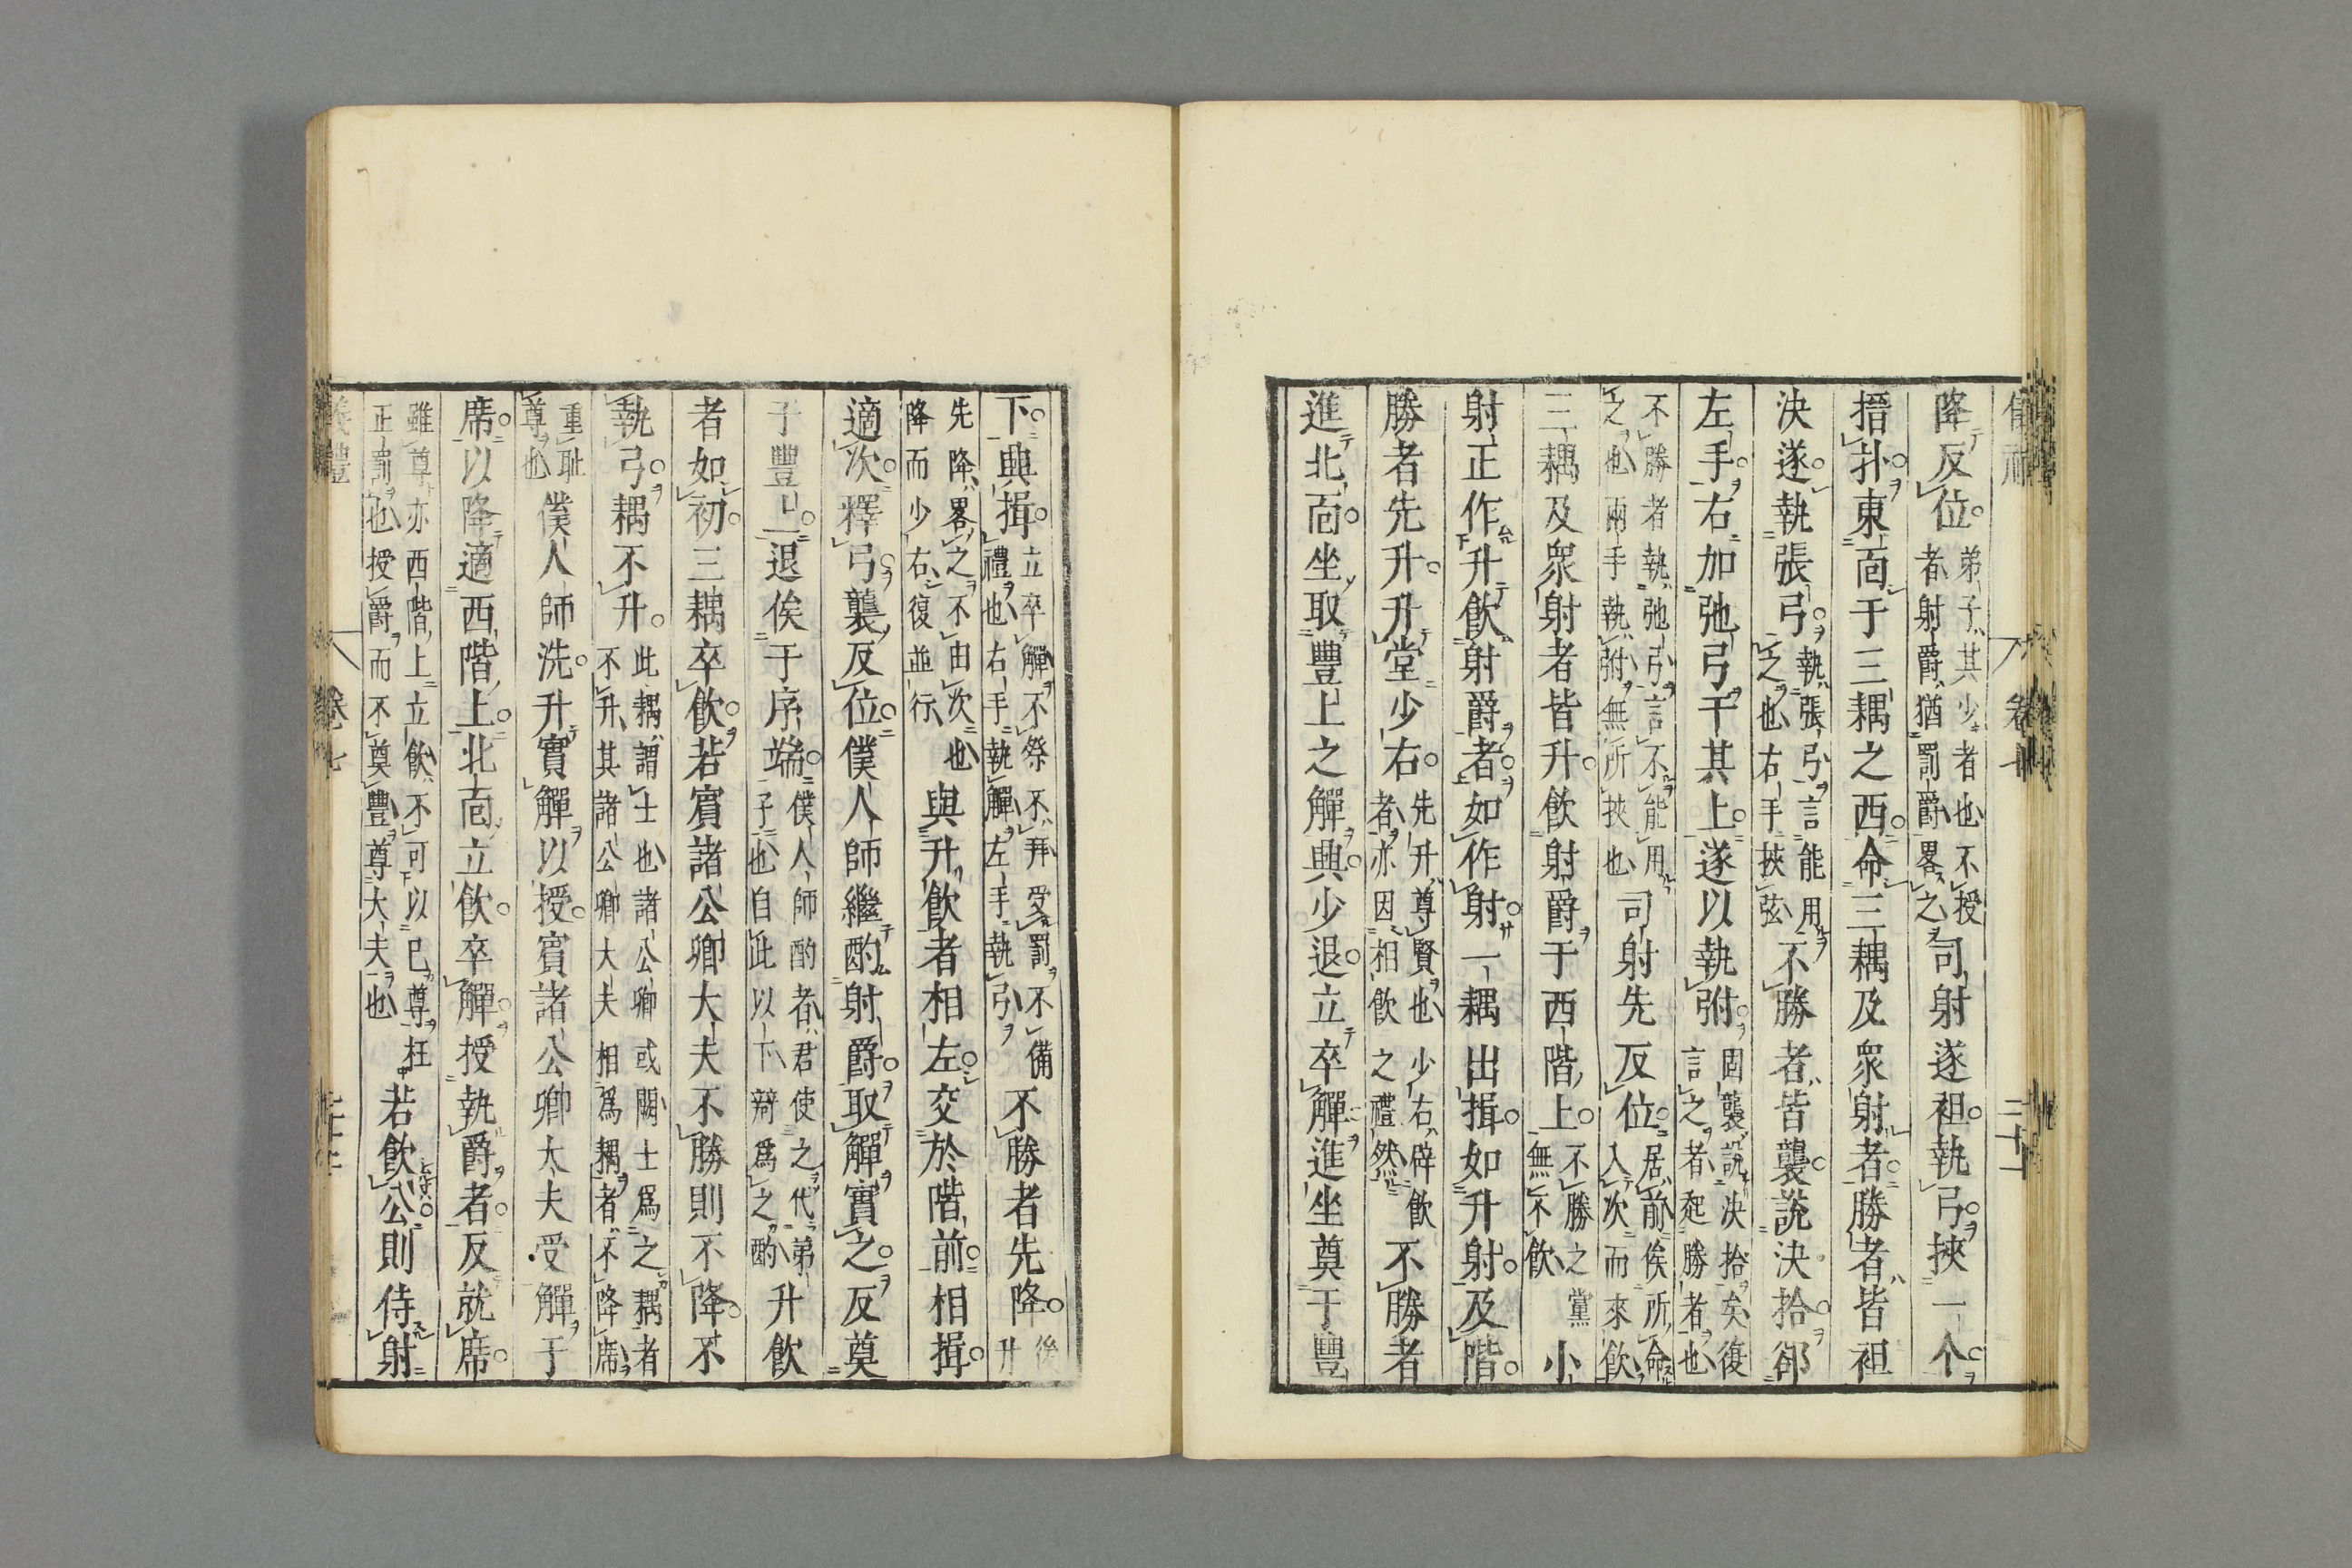 降反位弟子其少者也不授者射爵猶罰爵畧之司射遂袒執弓挾一个
搢扑東面于三耦之西命三耦及衆射者勝者皆袒
決遂執張弓執張弓言能用之也右手挾弦不勝者皆襲說決拾郤
左手右加弛弓于其上遂以執弣固襲說決拾矣復言之者起勝者也
不勝者執弛弓言不能用之也兩手執弣無所挾也司射先反位居前俟所命入次而來飲
三耦及衆射者皆升飲射爵于西階上不勝之黨無不飲小
射正作升飲射爵者如作射一耦出揖如升射及階
勝者先升升堂少右先升尊賢也少右辟飲者亦因相飲之禮然不勝者
進北面坐取豐上之觶興少退立卒觶進坐奠于豐
下興揖立卒觶不祭不拜受罰不備禮也右手執觶左手執弓不勝者先降後升
先降畧之不由次也降而少右復並行與升飲者相左交於階前相揖
適次釋弓襲反位僕人師繼酌射爵取觶實之反奠
于豐上退俟于序端僕人師酌者君使之代弟子也自此以下辯爲之酌升飲
者如初三耦卒飲若賓諸公卿大夫不勝則不降不
執弓耦不升此耦謂士也諸公卿或闕士爲之耦者不升其諸公卿大夫相爲耦者不降席
重耻尊也僕人師洗升實觶以授賓諸公卿大夫受觶于
席以降適西階上北面立飲卒觶授執爵者反就席
雖尊亦西階上立飲不可以已尊枉正罰也授爵而不奠豐尊大夫也若飲公則侍射